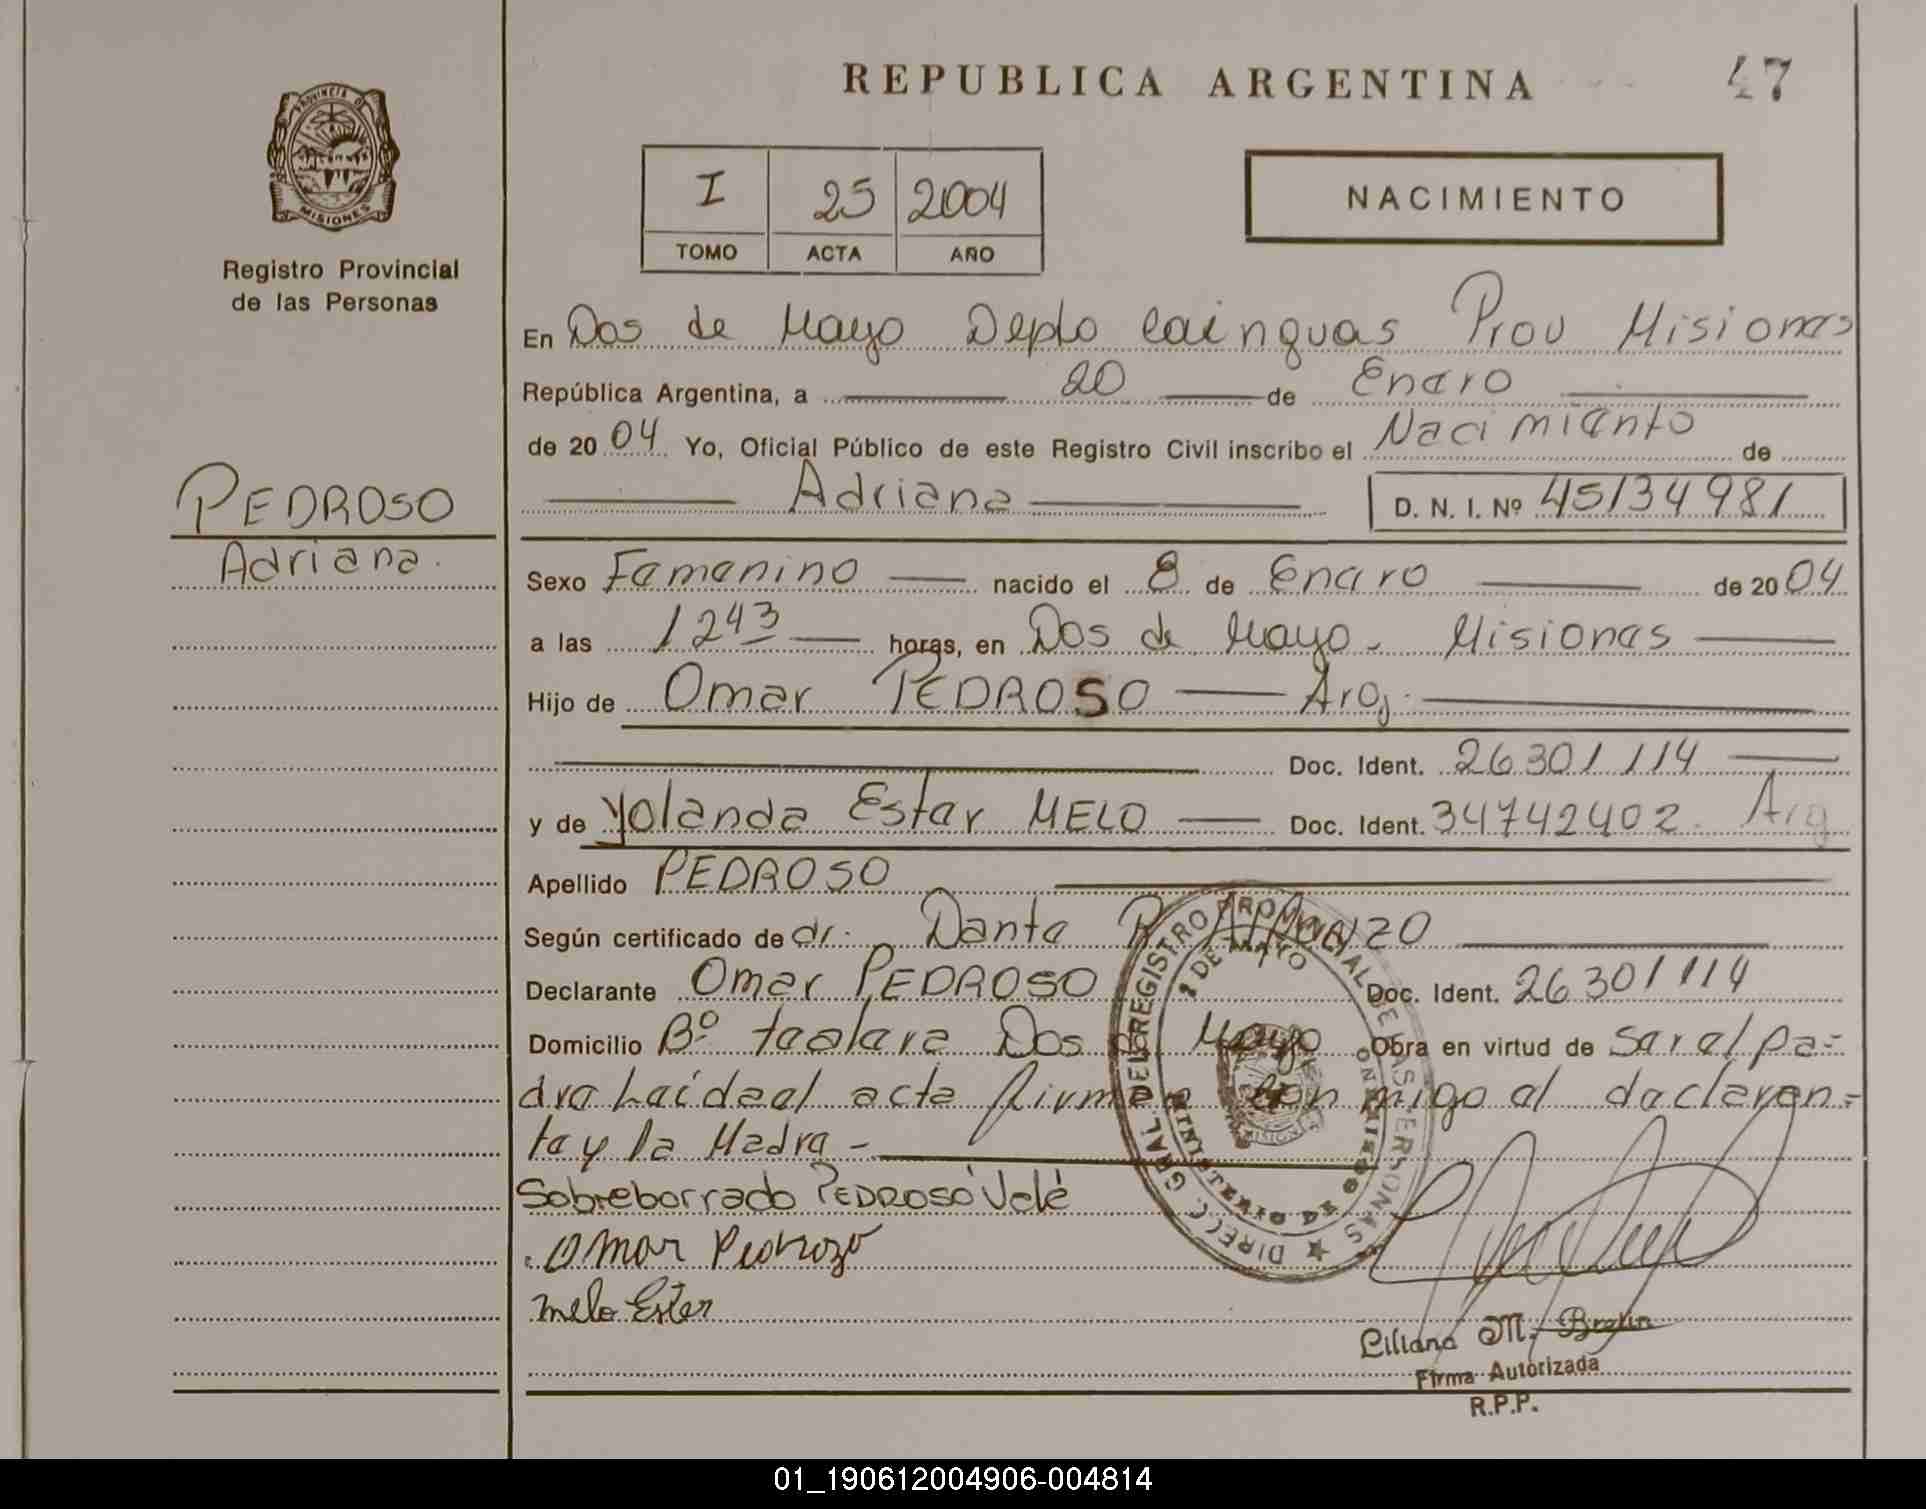 REPUBLICA ARGENTINA
47
PROVINCIA DE
MISIONES
Registro Provincial
de las Personas
I 25 2004
TOMO ACTA AÑO
NACIMIENTO
En Dos de Mayo Depto Cainguas Prov Misiones
República Argentina, a 20 de Enero
de 2004 Yo, Oficial Público de este Registro Civil inscribo el Nacimiento de
Adriana D. N. I. Nº 45134981
PEDROSO
Adriana.
Sexo Femenino nacido el 8 de Enero de 2004
a las 1243 horas, en Dos de Mayo - Misiones
Hijo de Omar PEDROSO Arg.
Doc. Ident. 26301114
y de Yolanda Ester MELO Doc. Ident. 34742402. Arg
Apellido PEDROSO
Según certificado de dr. Dante R.
Declarante Omar PEDROSO Doc. Ident. 26301114
Domicilio Bº Dos de Mayo Obra en virtud de ser el pa=
dre Leída el acta firman con migo el declaran=
te y la Madre -
Sobreborrado PEDROSO Vale
Omar Pedrozo
Melo Ester
DIRECC. GRAL DEL REGISTRO PROVINCIAL DE LAS PERSONAS
Liliana M.
Firma Autorizada
R.P.P.
01_190612004906-004814